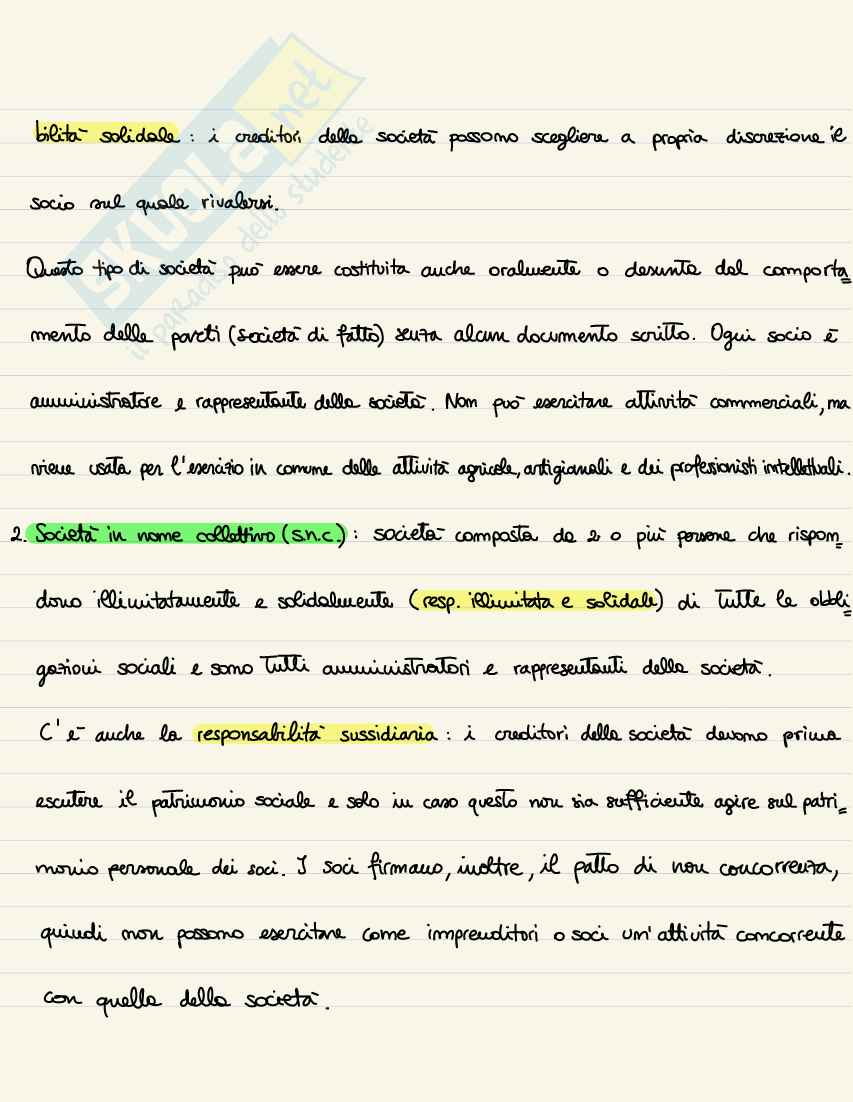 SKUOLA.net
il paradiso dello studente
bilità solidale : i creditori della società possono scegliere a propria discrezione il
socio sul quale rivalersi.
Questo tipo di società può essere costituita anche oralmente o desunta dal comporta=
mento delle parti (società di fatto) senza alcun documento scritto. Ogni socio è
amministratore e rappresentante della società. Non può esercitare attività commerciali, ma
viene usata per l'esercizio in comune delle attività agricole, artigianali e dei professionisti intellettuali.
2. Società in nome collettivo (s.n.c.) : società composta da 2 o più persone che rispon=
dono illimitatamente e solidalmente (resp. illimitata e solidale) di tutte le obbli=
gazioni sociali e sono tutti amministratori e rappresentanti della società.
C'è anche la responsabilità sussidiaria : i creditori della società devono prima
escutere il patrimonio sociale e solo in caso questo non sia sufficiente agire sul patri=
monio personale dei soci. I soci firmano, inoltre, il patto di non concorrenza,
quindi non possono esercitare come imprenditori o soci un'attività concorrente
con quella della società.